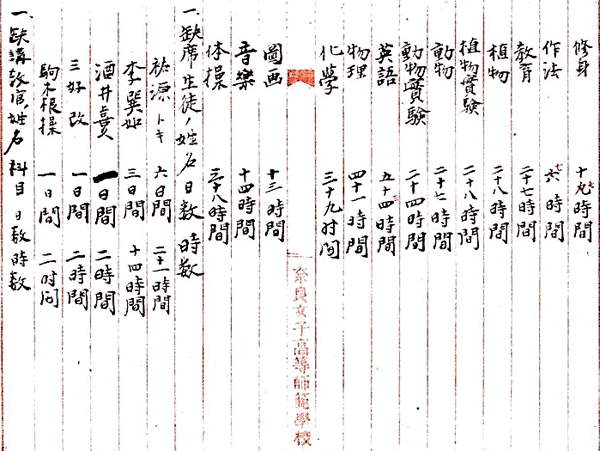 修身 十九時間
作法 六時間
教育 二十七時間
植物 二十八時間
植物實験 二十八時間
動物 二十七時間
動物實験 二十四時間
英語 五十四時間
物理 四十一時間
化學 三十九时间
奈良女子高等師範學校
圖画 十三時間
音樂 十四時間
体操 三十八時間
一、缺席生徒ノ姓名 日数 時数
トキ 六日間 二十一時間
李巽如 三日間 十四時間
酒井喜 一日間 二時間
三好改 一日間 二時間
駒木根操 一日间 二时间
一、缺講教官姓名 科目 日数 時数